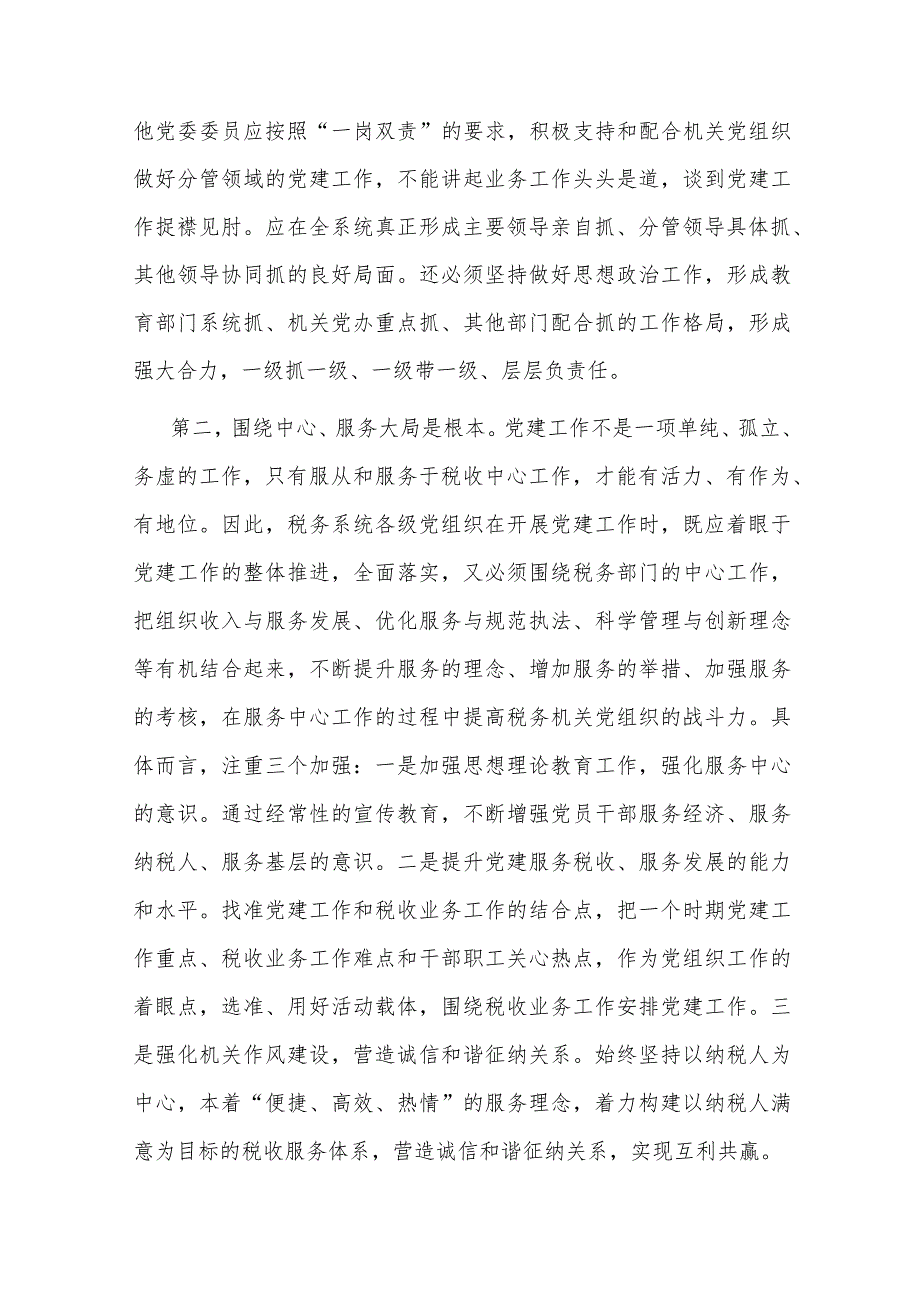 他党委委员应按照“一岗双责”的要求，积极支持和配合机关党组织
做好分管领域的党建工作，不能讲起业务工作头头是道，谈到党建工
作捉襟见肘。应在全系统真正形成主要领导亲自抓、分管领导具体抓、
其他领导协同抓的良好局面。还必须坚持做好思想政治工作，形成教
育部门系统抓、机关党办重点抓、其他部门配合抓的工作格局，形成
强大合力，一级抓一级、一级带一级、层层负责任。
第二，围绕中心、服务大局是根本。党建工作不是一项单纯、孤立、
务虚的工作，只有服从和服务于税收中心工作，才能有活力、有作为、
有地位。因此，税务系统各级党组织在开展党建工作时，既应着眼于
党建工作的整体推进，全面落实，又必须围绕税务部门的中心工作，
把组织收入与服务发展、优化服务与规范执法、科学管理与创新理念
等有机结合起来，不断提升服务的理念、增加服务的举措、加强服务
的考核，在服务中心工作的过程中提高税务机关党组织的战斗力。具
体而言，注重三个加强：一是加强思想理论教育工作，强化服务中心
的意识。通过经常性的宣传教育，不断增强党员干部服务经济、服务
纳税人、服务基层的意识。二是提升党建服务税收、服务发展的能力
和水平。找准党建工作和税收业务工作的结合点，把一个时期党建工
作重点、税收业务工作难点和干部职工关心热点，作为党组织工作的
着眼点，选准、用好活动载体，围绕税收业务工作安排党建工作。三
是强化机关作风建设，营造诚信和谐征纳关系。始终坚持以纳税人为
中心，本着“便捷、高效、热情”的服务理念，着力构建以纳税人满
意为目标的税收服务体系，营造诚信和谐征纳关系，实现互利共赢。